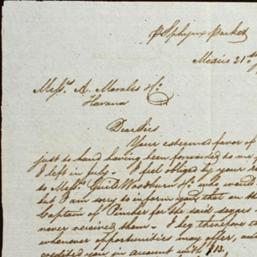 p Sphynx Packet
Mexico 21st
Messrs. A. Morales & Co.
Havana
Dear Sirs
Your esteemed favor of
just to hand having been forwarded to me
I left in July. I feel obliged by your
to Messrs. Guild Woodburn & Co. who would
but I am sorry to inform you that on the
Captain of Pincher for the said segars
never received them. I beg therefore
whenever opportunities may offer, and
credited you in account with $13,